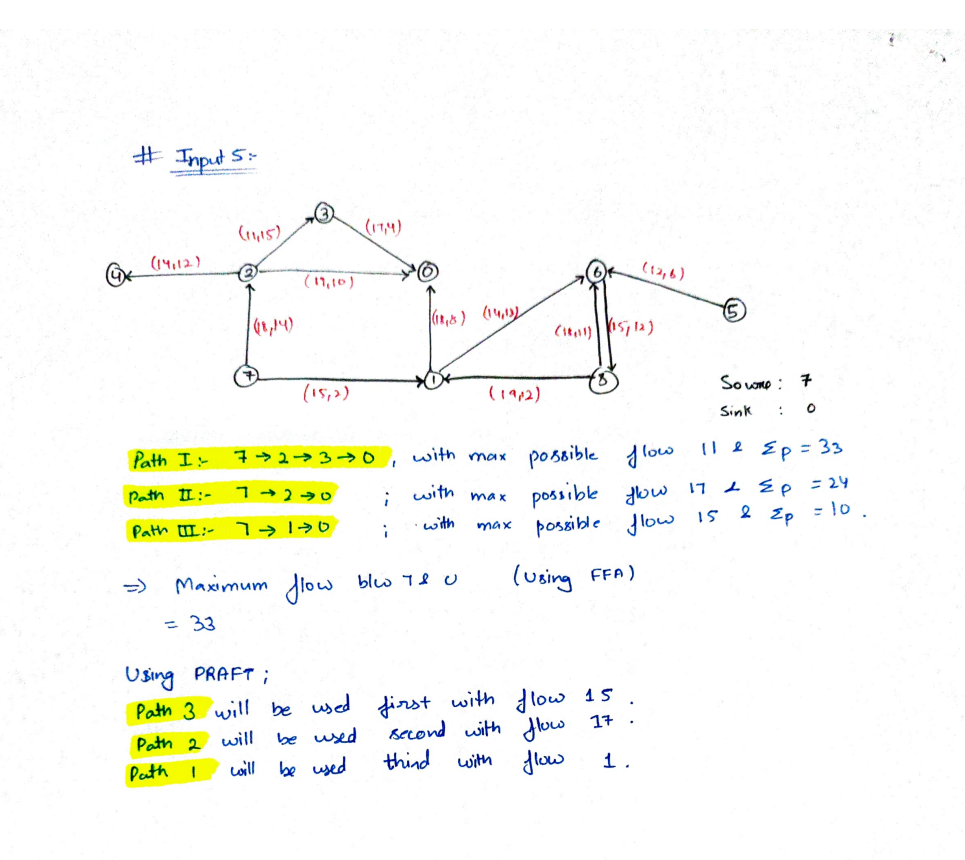 # Input 5:-
3
(11,15)
(17,4)
4
(14,12)
2
(17,10)
0
6
(12,6)
5
(18,14)
(18,8)
(14,13)
(18,11)
(15,12)
7
(15,2)
1
(19,2)
8
Source : 7
Sink : 0
Path I :- 7 → 2 → 3 → 0 , with max possible flow 11 & Σp = 33
Path II :- 7 → 2 → 0 ; with max possible flow 17 & Σp = 24
Path III :- 7 → 1 → 0 ; with max possible flow 15 & Σp = 10 .
⇒ Maximum flow b/w 7 & 0 (Using FFA)
= 33
Using PRAFT ;
Path 3 will be used first with flow 15 .
Path 2 will be used second with flow 17 .
Path 1 will be used third with flow 1 .